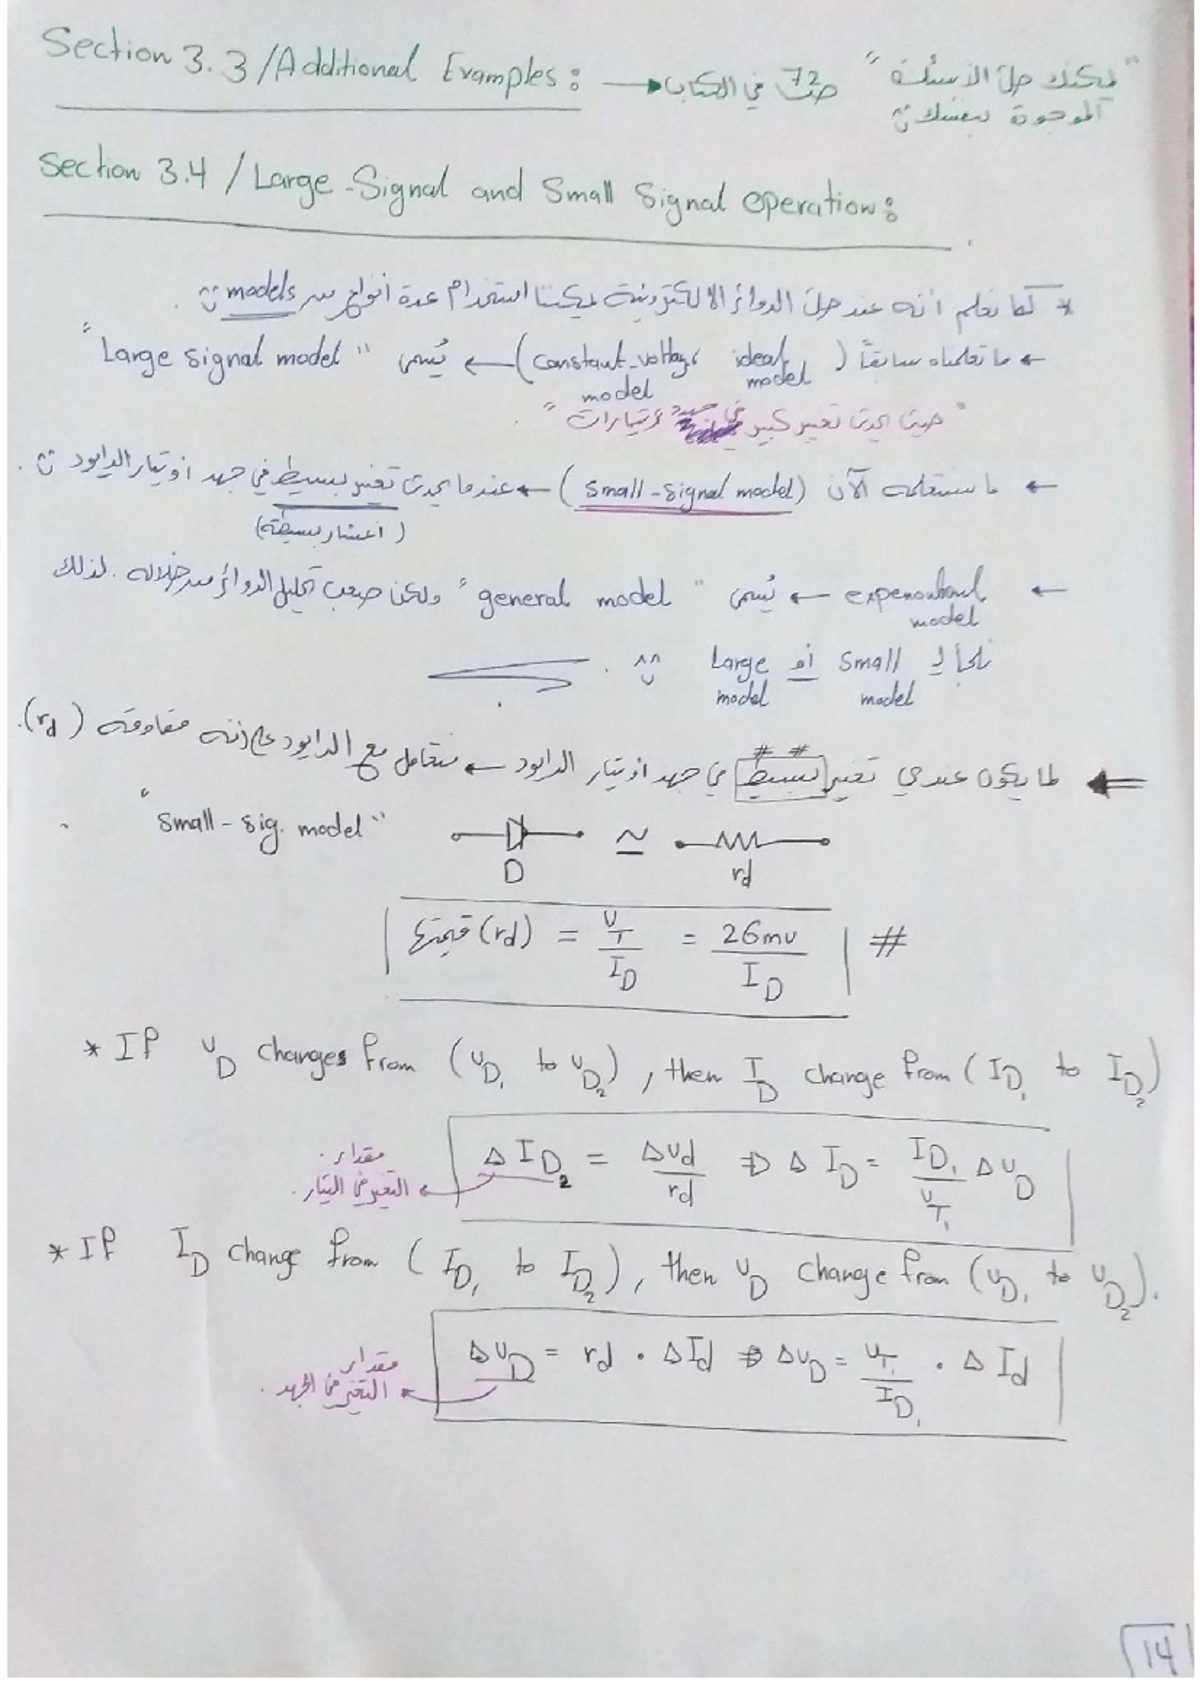 Section 3.3/Additional Examples: → صـ72 في الكتاب "يمكنك حل الأسئلة
الموجودة بنفسك
Section 3.4 / Large-Signal and Small Signal operation:
* كما نعلم أنه عند حل الدوائر الالكترونية يمكننا استخدام عدة أنواع من models.
← ما تعلمناه سابقاً (constant-voltage model, ideal model) ← يُسمى "Large signal model"
"حيث يحدث تغير كبير في جهد و تيارات"
← ما سنتعلمه الآن (small-signal model) ← عندما يحدث تغير بسيط في جهد أو تيار الدايود.
(أعشار بسيطة)
← expenontional model ← يُسمى "general model" ولكن صعب تحليل الدوائر من خلاله. لذلك
نلجأ لـ Small model أو Large model ^^.
⇐ لما يكون عندي تغير بسيط في جهد أو تيار الدايود ← نتعامل مع الدايود على أنه مقاومة (rd).
# #
"small-sig. model"
D ≃ rd
قيمتها (rd) = VT/ID = 26mv/ID #
* If VD changes from (VD1 to VD2), then ID change from (ID1 to ID2)
ΔID2 = ΔVd/rd ⇒ ΔID = ID1/VT1 ΔVD
مقدار
التغير في التيار.
* If ID change from (ID1 to ID2), then VD change from (VD1 to VD2).
ΔVD = rd . ΔId ⇒ ΔVD = VT1/ID1 . ΔId
مقدار
التغير في الجهد.
14